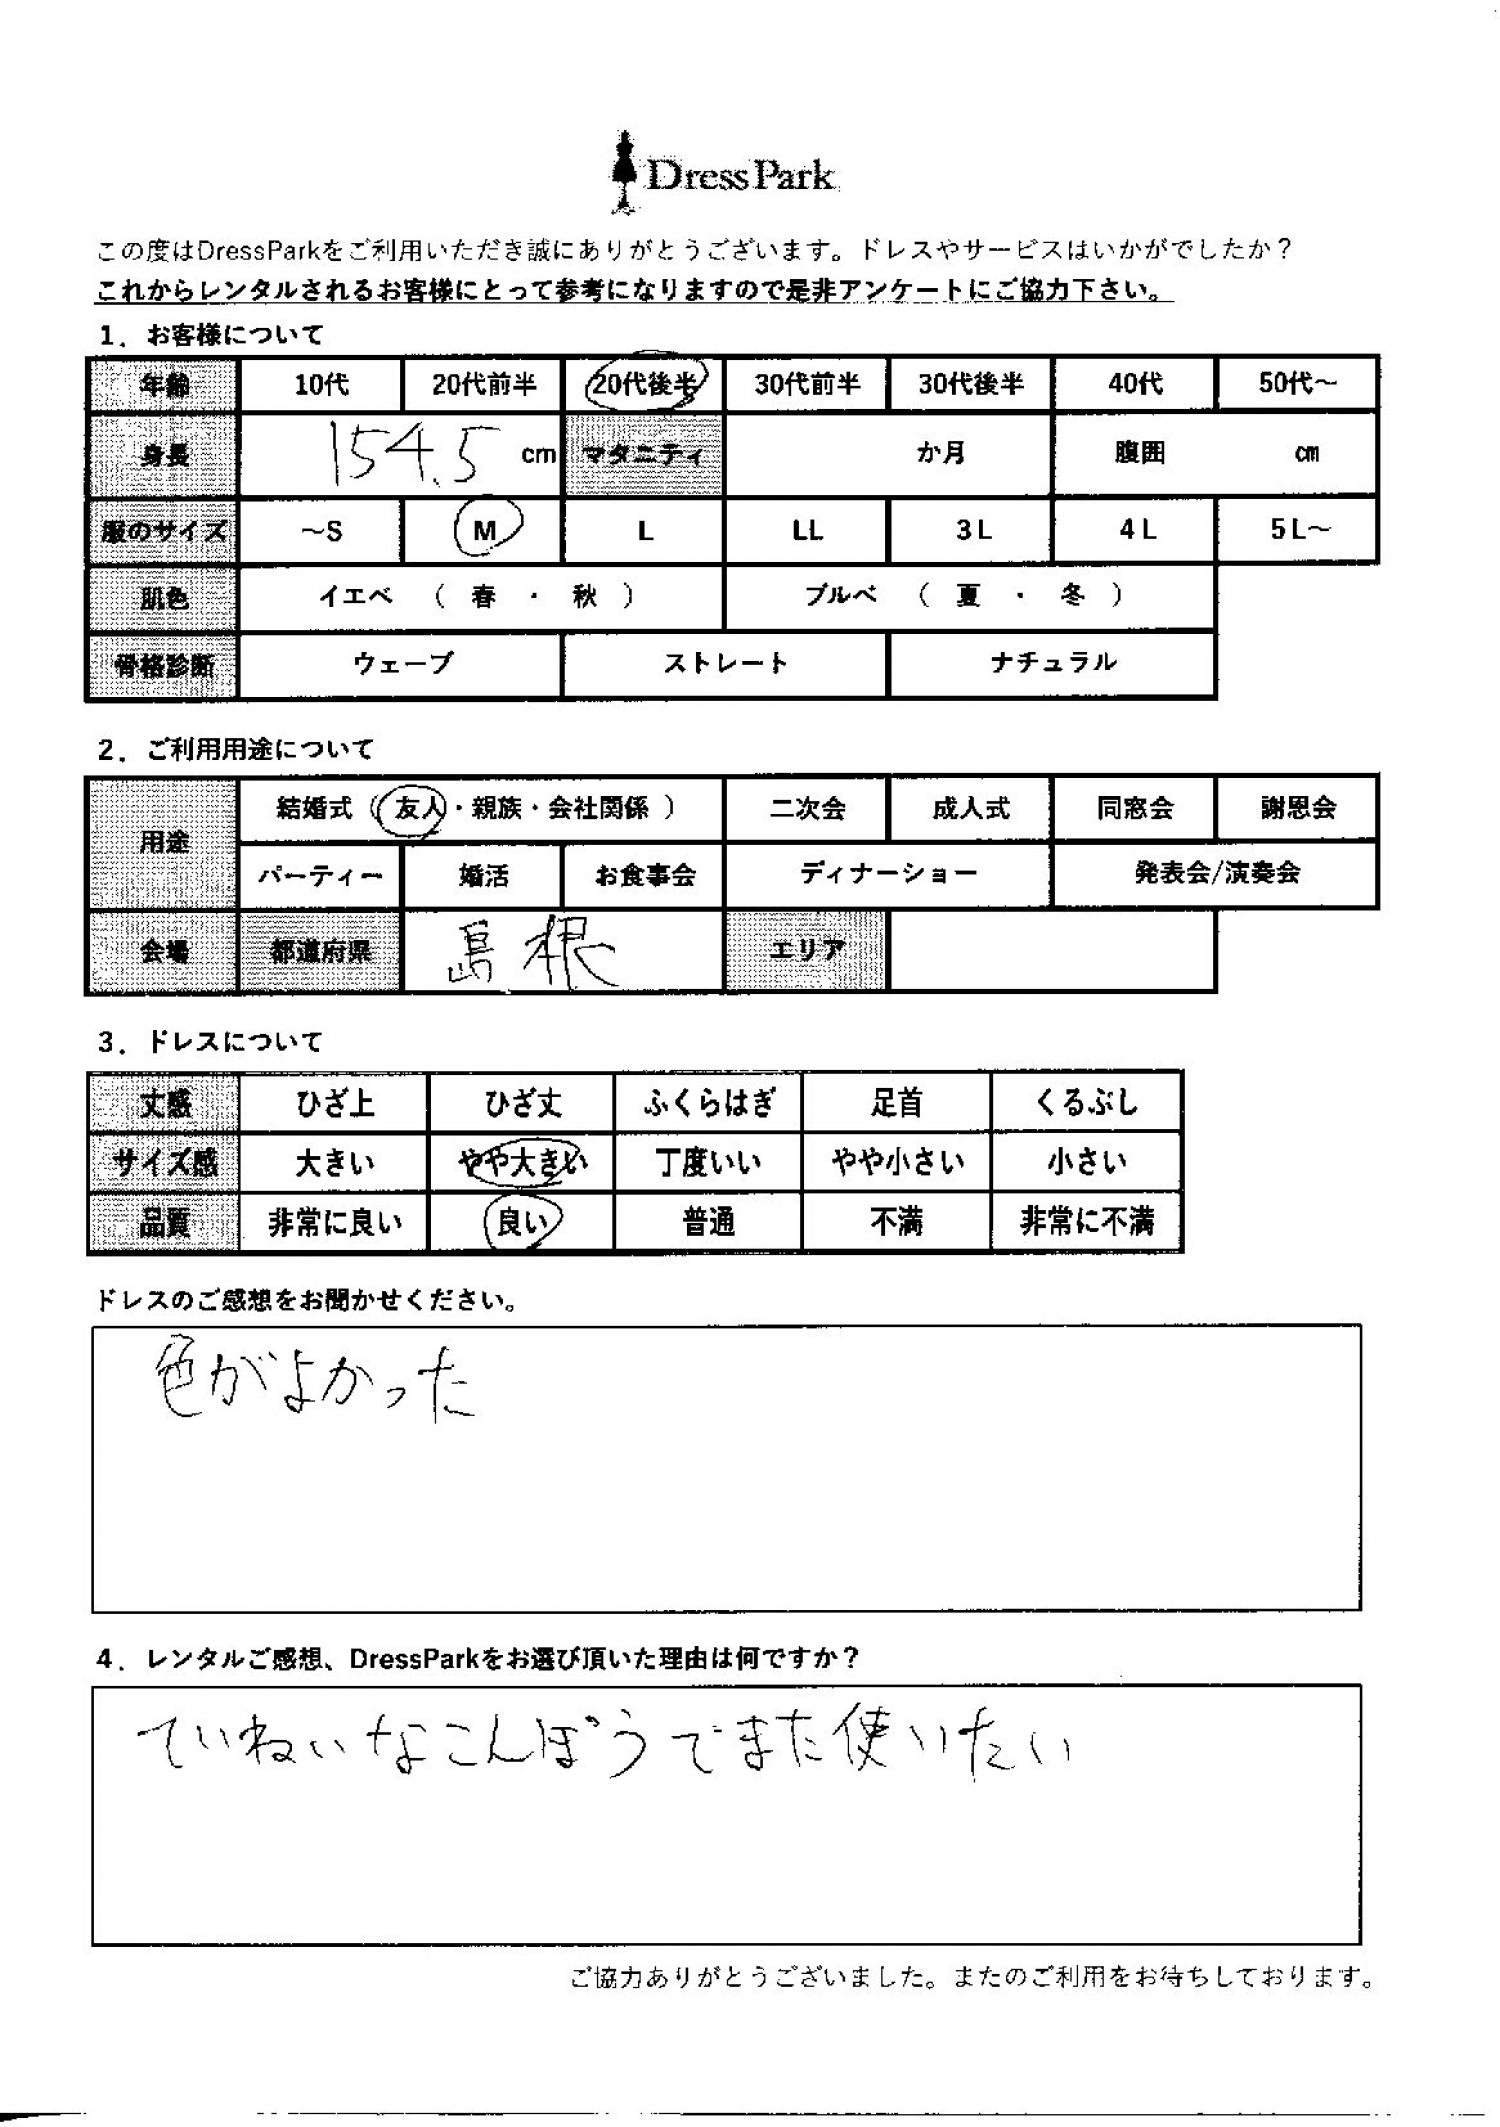 DressPark
この度はDressParkをご利用いただき誠にありがとうございます。ドレスやサービスはいかがでしたか？
これからレンタルされるお客様にとって参考になりますので是非アンケートにご協力下さい。
1．お客様について
年齢 10代 20代前半 20代後半 30代前半 30代後半 40代 50代～
身長 154.5 cm マタニティ か月 腹囲 ㎝
服のサイズ ～S M L LL 3L 4L 5L～
肌色 イエベ （ 春 ・ 秋 ） ブルベ （ 夏 ・ 冬 ）
骨格診断 ウェーブ ストレート ナチュラル
2．ご利用用途について
用途 結婚式（ 友人・親族・会社関係 ） 二次会 成人式 同窓会 謝恩会
パーティー 婚活 お食事会 ディナーショー 発表会/演奏会
会場 都道府県 島根 エリア
3．ドレスについて
丈感 ひざ上 ひざ丈 ふくらはぎ 足首 くるぶし
サイズ感 大きい やや大きい 丁度いい やや小さい 小さい
品質 非常に良い 良い 普通 不満 非常に不満
ドレスのご感想をお聞かせください。
色がよかった
4．レンタルご感想、DressParkをお選び頂いた理由は何ですか？
ていねいなこんぽうでまた使いたい
ご協力ありがとうございました。またのご利用をお待ちしております。